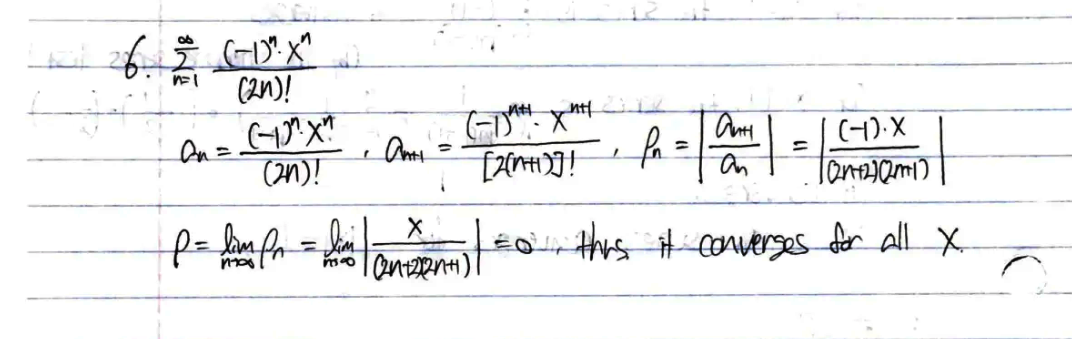 6. \sum_{n=1}^{\infty} \frac{(-1)^n \cdot x^n}{(2n)!}
a_n = \frac{(-1)^n \cdot x^n}{(2n)!}, a_{n+1} = \frac{(-1)^{n+1} \cdot x^{n+1}}{[2(n+1)]!}, \rho_n = \left| \frac{a_{n+1}}{a_n} \right| = \left| \frac{(-1) \cdot x}{(2n+2)(2n+1)} \right|
\rho = \lim_{n \to \infty} \rho_n = \lim_{n \to \infty} \left| \frac{x}{(2n+2)(2n+1)} \right| = 0, thus it converges for all x.